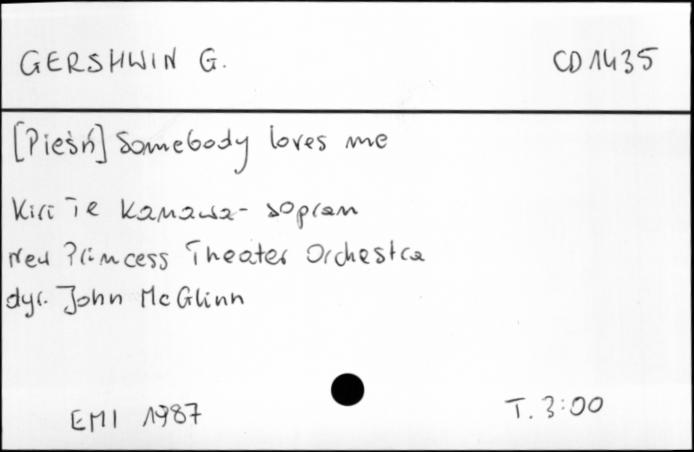 GERSHWIN G.
CD 1435
[Pieśń] Somebody loves me
Kiri Te Kanawa - sopran
New Princess Theater Orchestra
dyr. John McGlinn
EMI 1987
T. 3:00